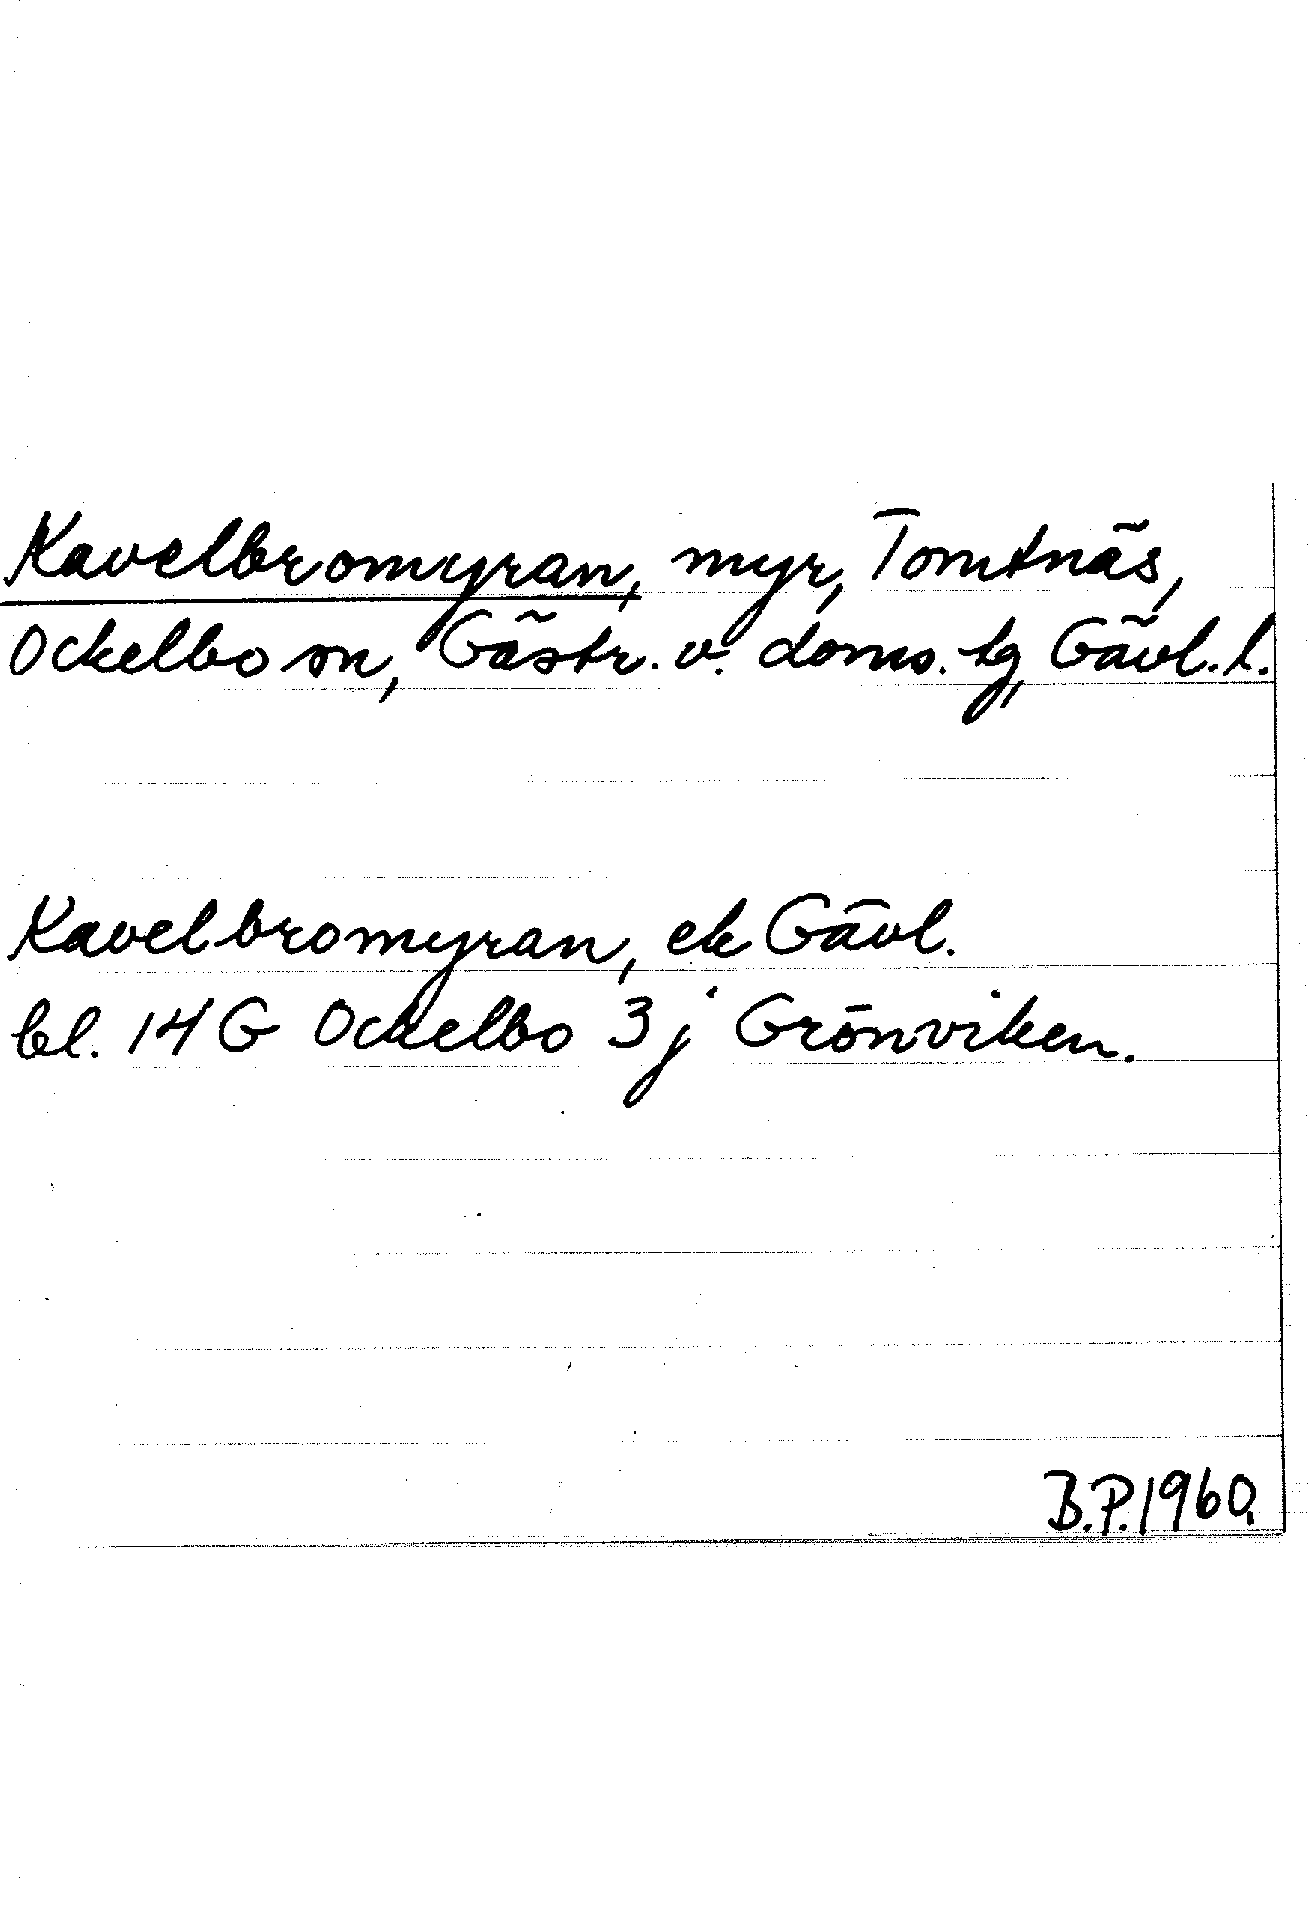 Kavelbromyran, myr, Tomtnäs,
Ockelbo sn, Gästr. v. doms. tg, Gävl. l.
Kavelbromyran, ek Gävl.
bl. 14 G Ockelbo 3 j Grönviken.
B.P. 1960.